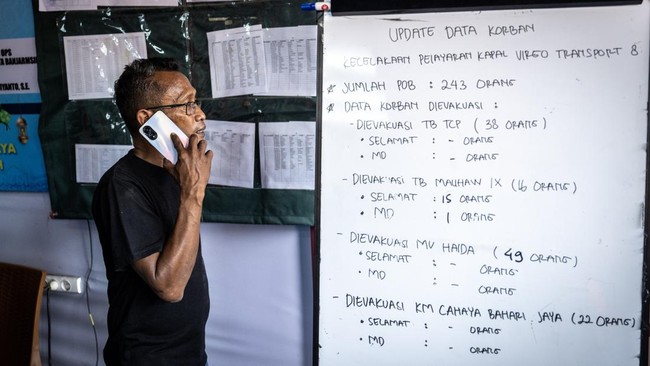 OPS
YANTO, S.E.
UPDATE DATA KORBAN
KECELAKAAN PELAYARAN KAPAL VIRGO TRANSPORT 8
* JUMLAH POB : 243 ORANG
* DATA KORBAN DIEVAKUASI :
- DIEVAKUASI TB TCP ( 38 ORANG )
• SELAMAT : - ORANG
• MD : - ORANG
- DIEVAKUASI TB MAUHAW IX (16 ORANG)
• SELAMAT : 15 ORANG
• MD : 1 ORANG
- DIEVAKUASI MV HAIDA ( 49 ORANG )
• SELAMAT : - ORANG
• MD : - ORANG
- DIEVAKUASI KM CAHAYA BAHARI JAYA ( 22 ORANG)
• SELAMAT : - ORANG
• MD : - ORANG